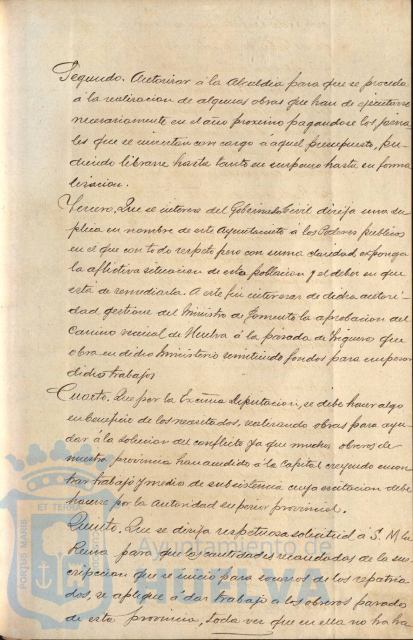 Segundo. Autorizar á la Alcaldia para que se proceda
á la realizacion de algunas obras que han de ejecutarse
necesariamente en el año proximo pagandose los jorna
les que se inviertan con cargo á aquel presupuesto, pu-
diendo librarse hasta tanto en suspenso hasta su forma
lizacion.
Tercero. Que se interese del Gobernador Civil dirija una su-
plica en nombre de este Ayuntamiento á los Poderes publicos
en el que con todo respeto pero con suma claridad exponga
la aflictiva situacion de esta poblacion y el deber en que
está de remediarla. A este fin interesar de dicha autori-
dad gestione del Ministro de Fomento la aprobacion del
Camino vecinal de Huelva á la parada de Trigueros que
obra en dicho Ministerio remitiendo fondos para empezar
dichos trabajos
Cuarto. Que por la Excma Diputacion, se debe hacer algo
en beneficio de los necesitados, realizando obras para ayu-
dar á la solucion del conflicto ya que muchos obreros de
nuestra provincia han acudido á la Capital creyendo encon
trar trabajo y medio de subsistencia cuya escitacion debe
hacerse por la autoridad superior provincial.
Quinto. Que se dirija respetuosa solicitud á S. M. la
Reina para que las cantidades recaudadas de la sus
cripcion que se inició para socorros de los repatria
dos, se aplique á dar trabajo á los obreros parados
de esta provincia, toda vez que en ella no ha
PORTUS MARIS
ET TERRÆ
Ayuntamiento de
HUELVA